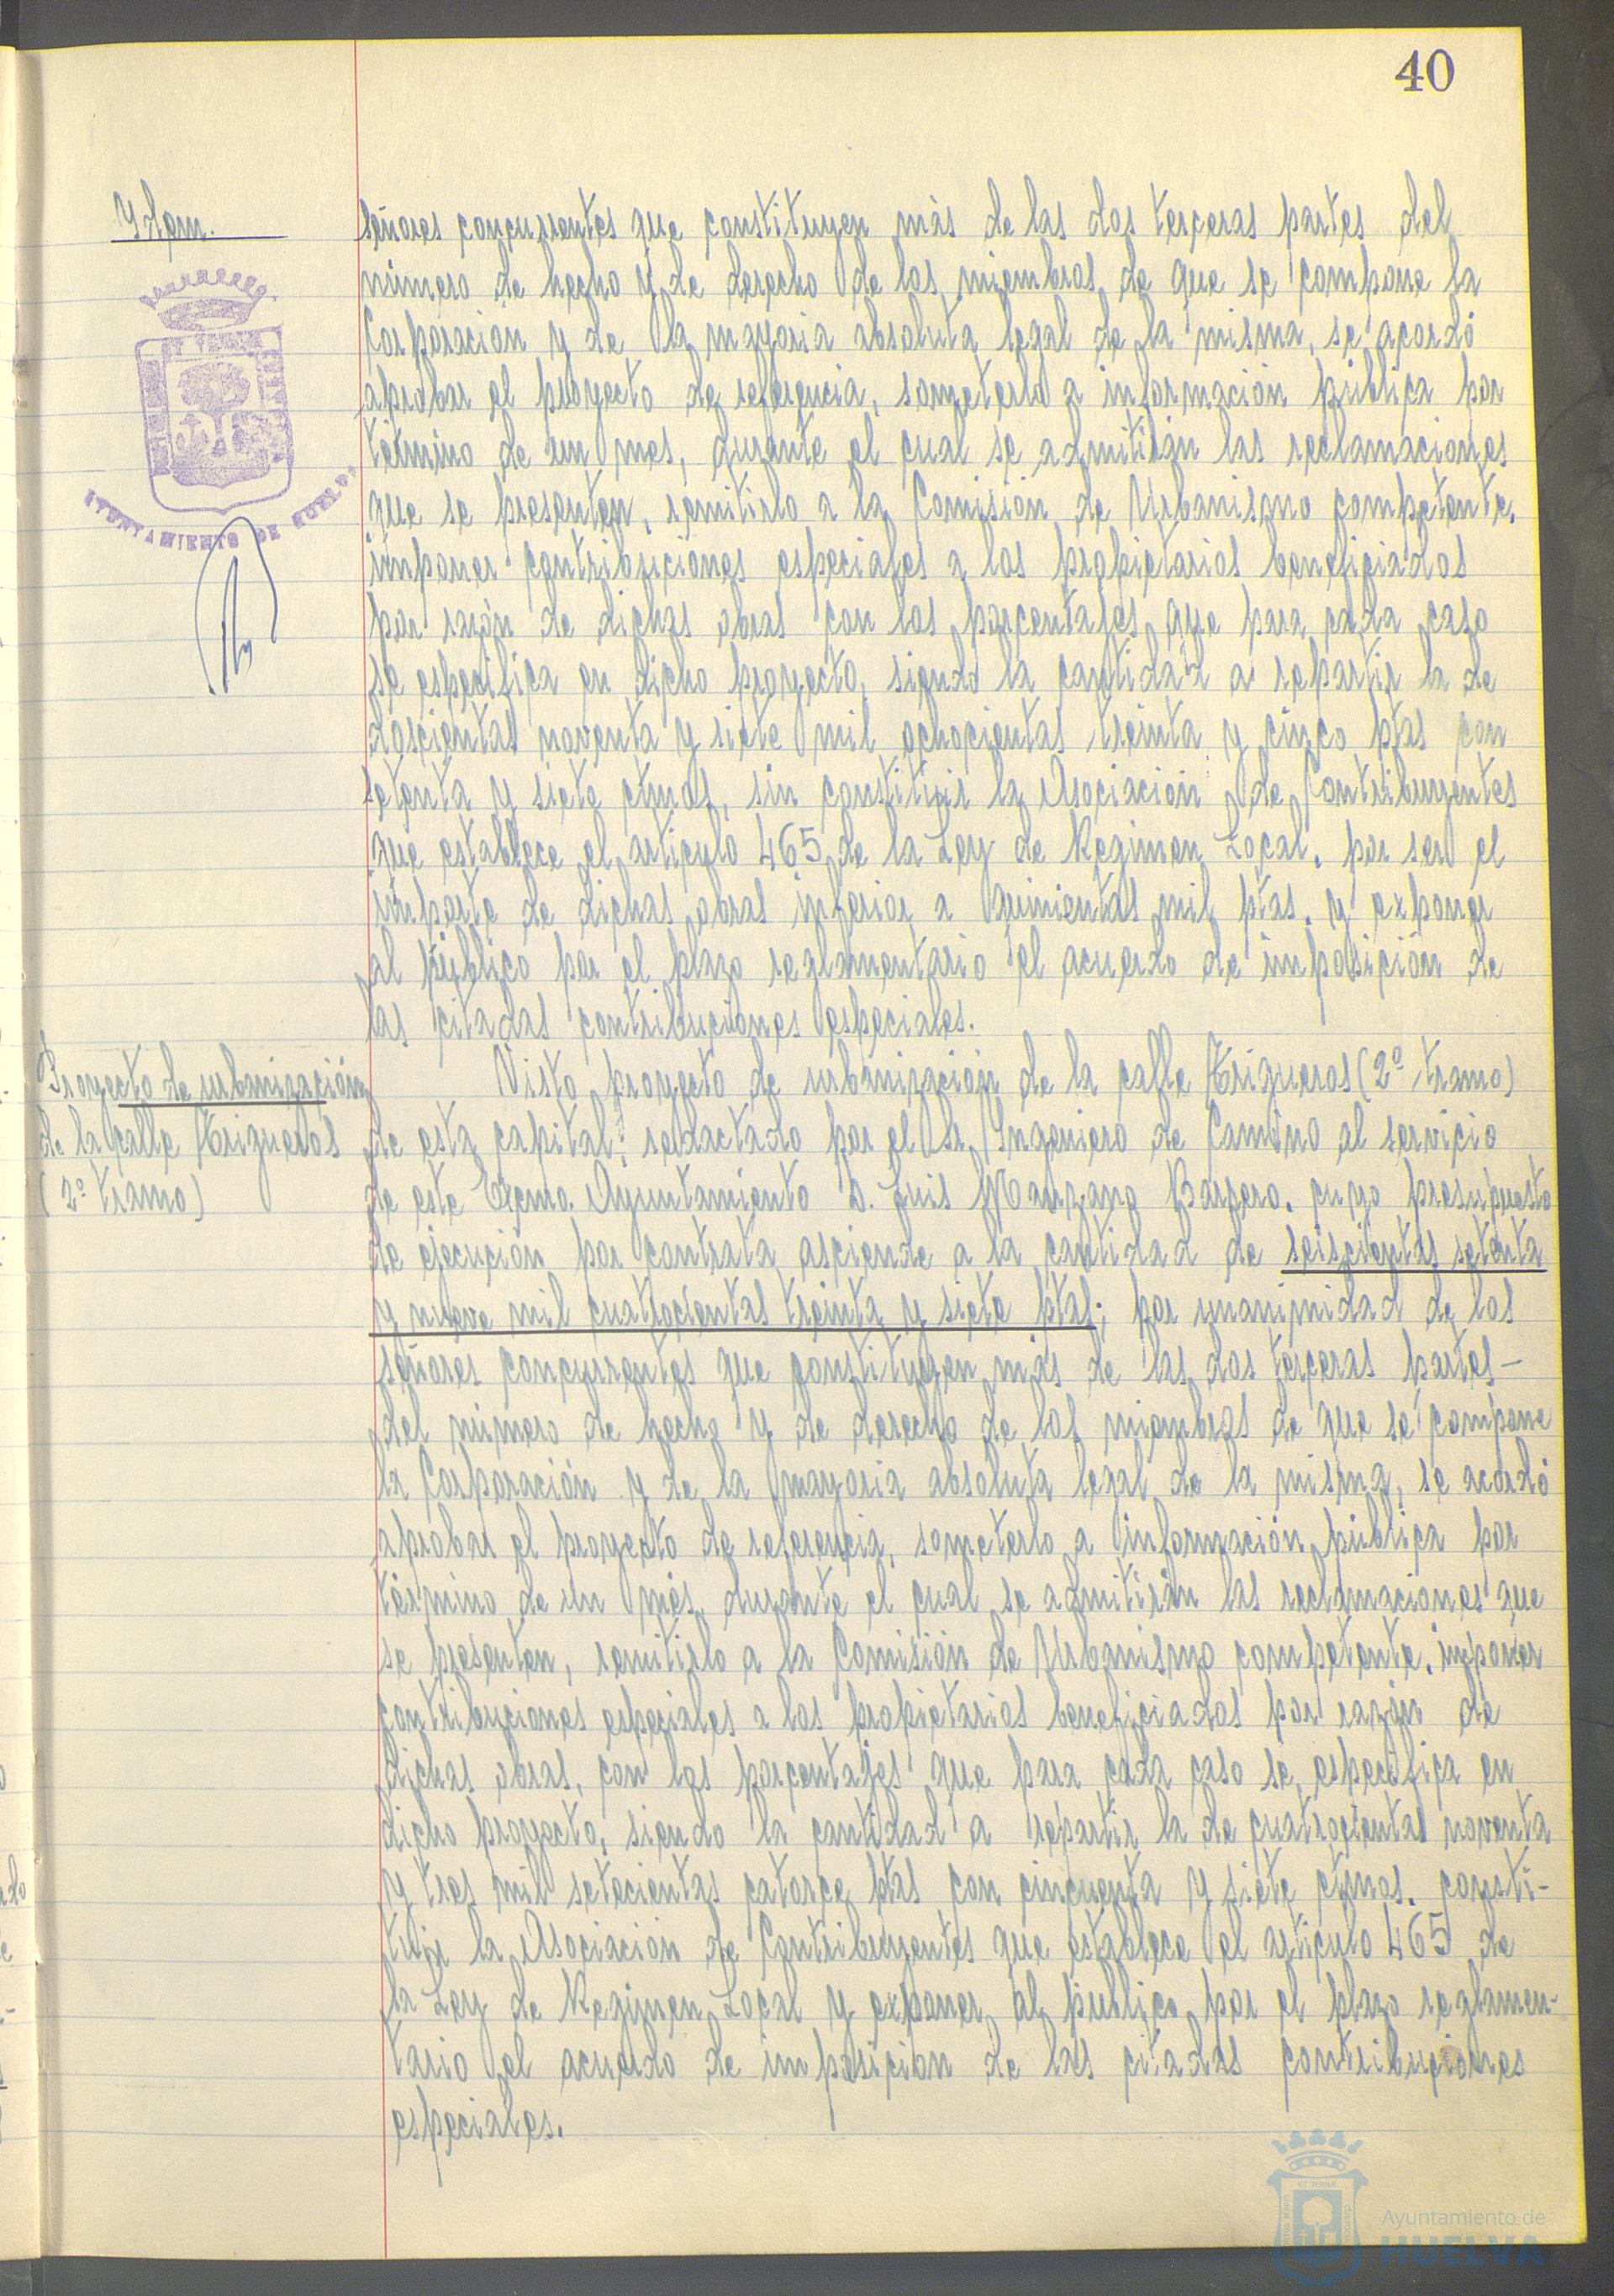 40
Ydem.
señores concurrentes que constituyen más de las dos terceras partes del
número de hecho y de derecho de los miembros de que se compone la
Corporacion y de la mayoria absoluta legal de la misma, se acordó
aprobar el proyecto de referencia, someterlo a información pública por
término de un mes, durante el cual se admitirán las reclamaciones
que se presenten, remitirlo a la Comisión de Urbanismo competente,
imponer contribuciones especiales a los propietarios beneficiados
por razón de dichas obras con los porcentajes que para cada caso
se especifica en dicho proyecto, siendo la cantidad a repartir la de
doscientas noventa y siete mil ochocientas treinta y cinco ptas con
setenta y siete ctmos, sin constituir la Asociación de Contribuyentes
que establece el articulo 465 de la Ley de Regimen Local, por ser el
importe de dichas obras inferior a quinientas mil ptas. y exponer
al público por el plazo reglamentario el acuerdo de imposición de
las citadas contribuciones especiales.
AYUNTAMIENTO DE HUELVA
Proyecto de urbanización
de la calle Trigueros
(2º tramo)
Visto proyecto de urbanización de la calle Trigueros (2º tramo)
de esta capital, redactado por el Sr. Ingeniero de Camino al servicio
de este Excmo. Ayuntamiento D. Luis Manzano Barrero, cuyo presupuesto
de ejecución por contrata asciende a la cantidad de seiscientas setenta
y nueve mil cuatrocientas treinta y siete ptas; por unanimidad de los
señores concurrentes que constituyen más de las dos terceras partes-
del número de hecho y de derecho de los miembros de que se compone
la Corporación y de la mayoria absoluta legal de la misma, se acordó
aprobar el proyecto de referencia, someterlo a información pública por
término de un mes, durante el cual se admitirán las reclamaciones que
se presenten, remitirlo a la Comisión de Urbanismo competente, imponer
contribuciones especiales a los propietarios beneficiados por razón de
dichas obras, con los porcentajes que para cada caso se especifica en
dicho proyecto, siendo la cantidad a repartir la de cuatrocientas noventa
y tres mil setecientas catorce ptas con cincuenta y siete ctmos. consti-
tuir la Asociación de Contribuyentes que establece el articulo 465 de
la Ley de Regimen Local y exponer al público por el plazo reglamen-
tario el acuerdo de imposicion de las citadas contribuciones
especiales.
Ayuntamiento de
HUELVA